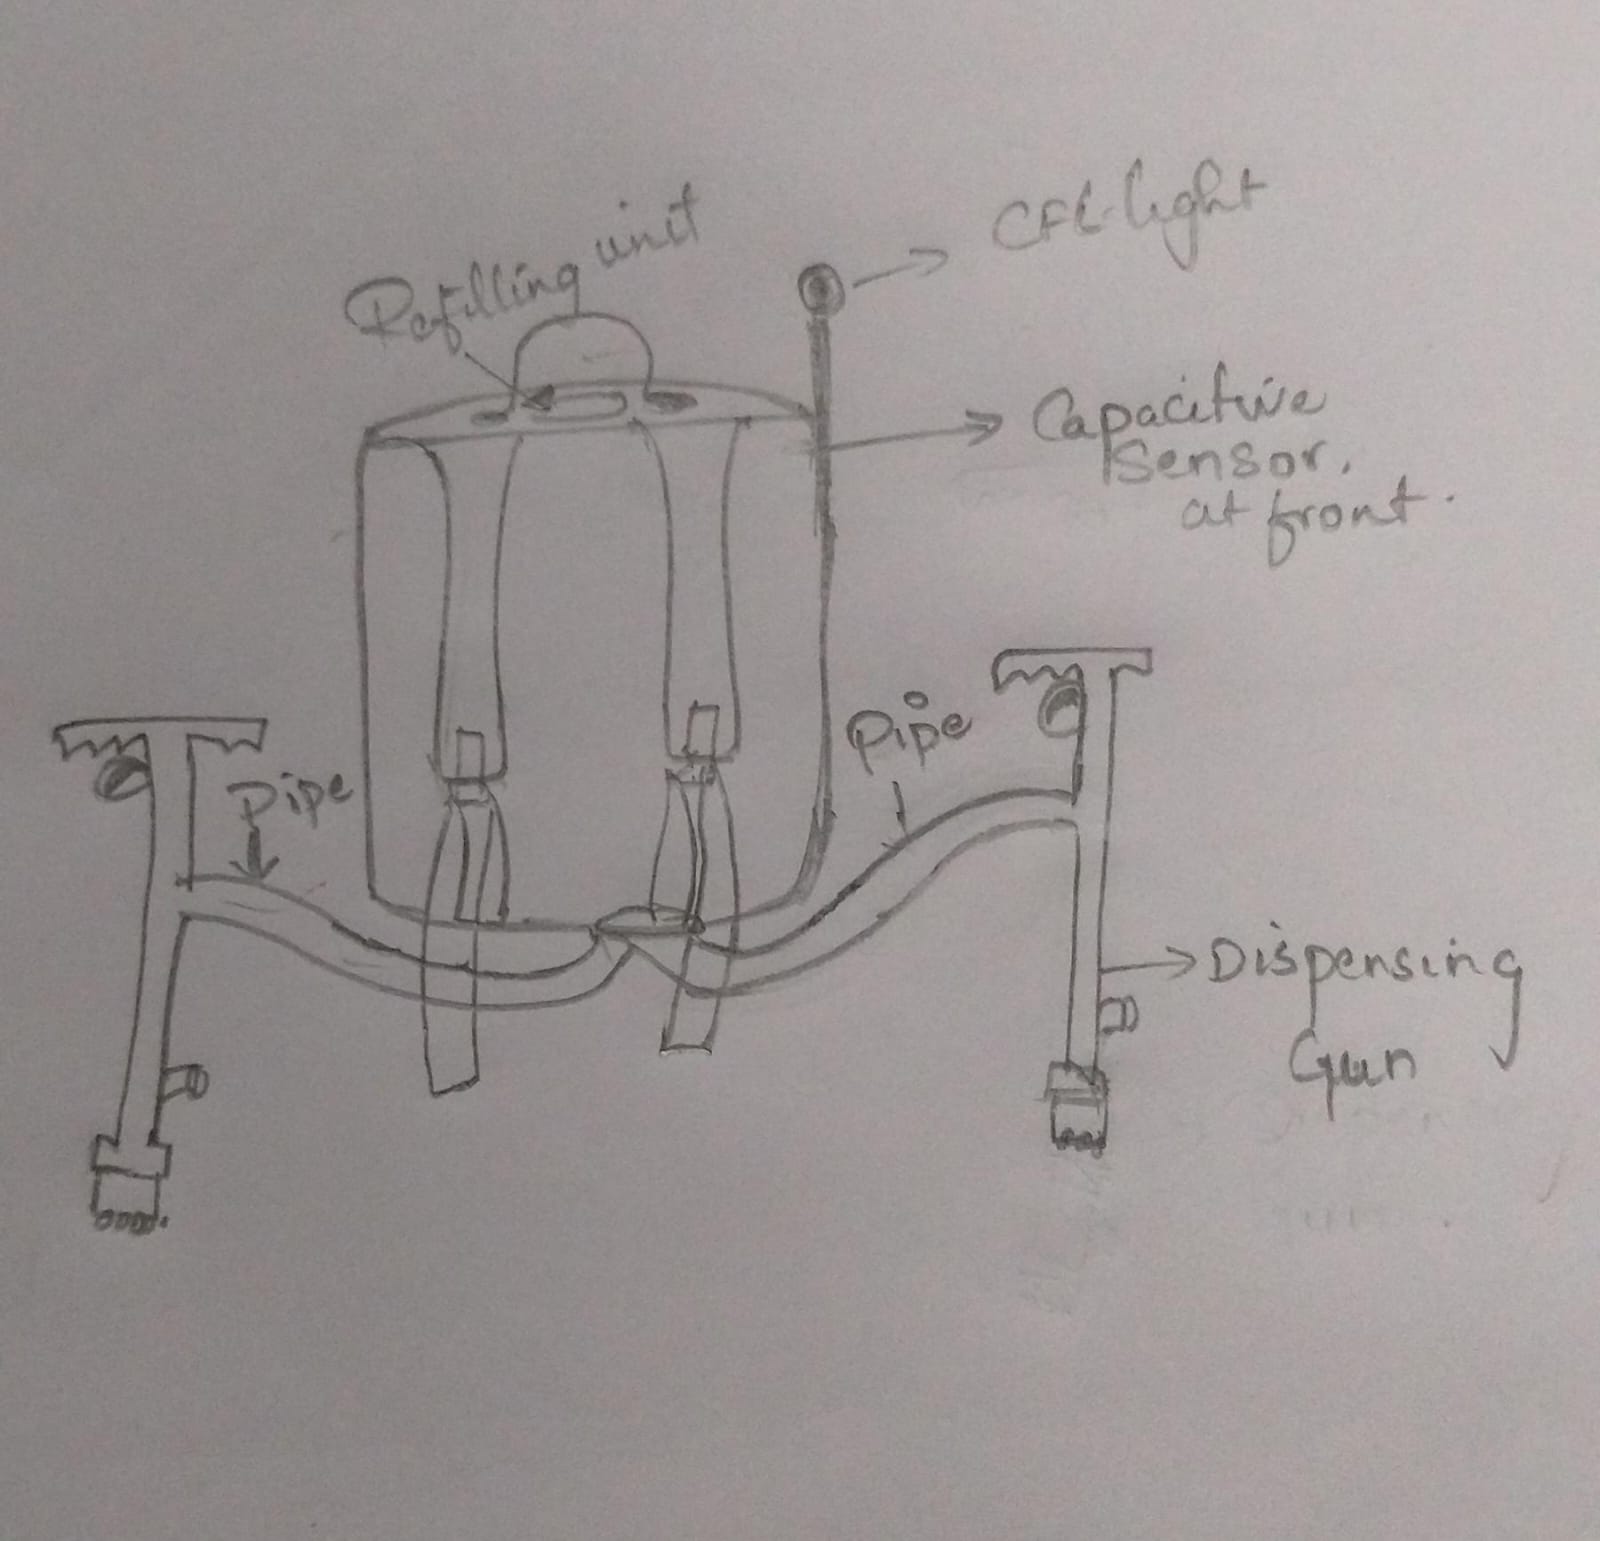 Refilling unit
CFL light
Capacitive
Sensor.
at front.
Pipe
Pipe
Dispensing
Gun